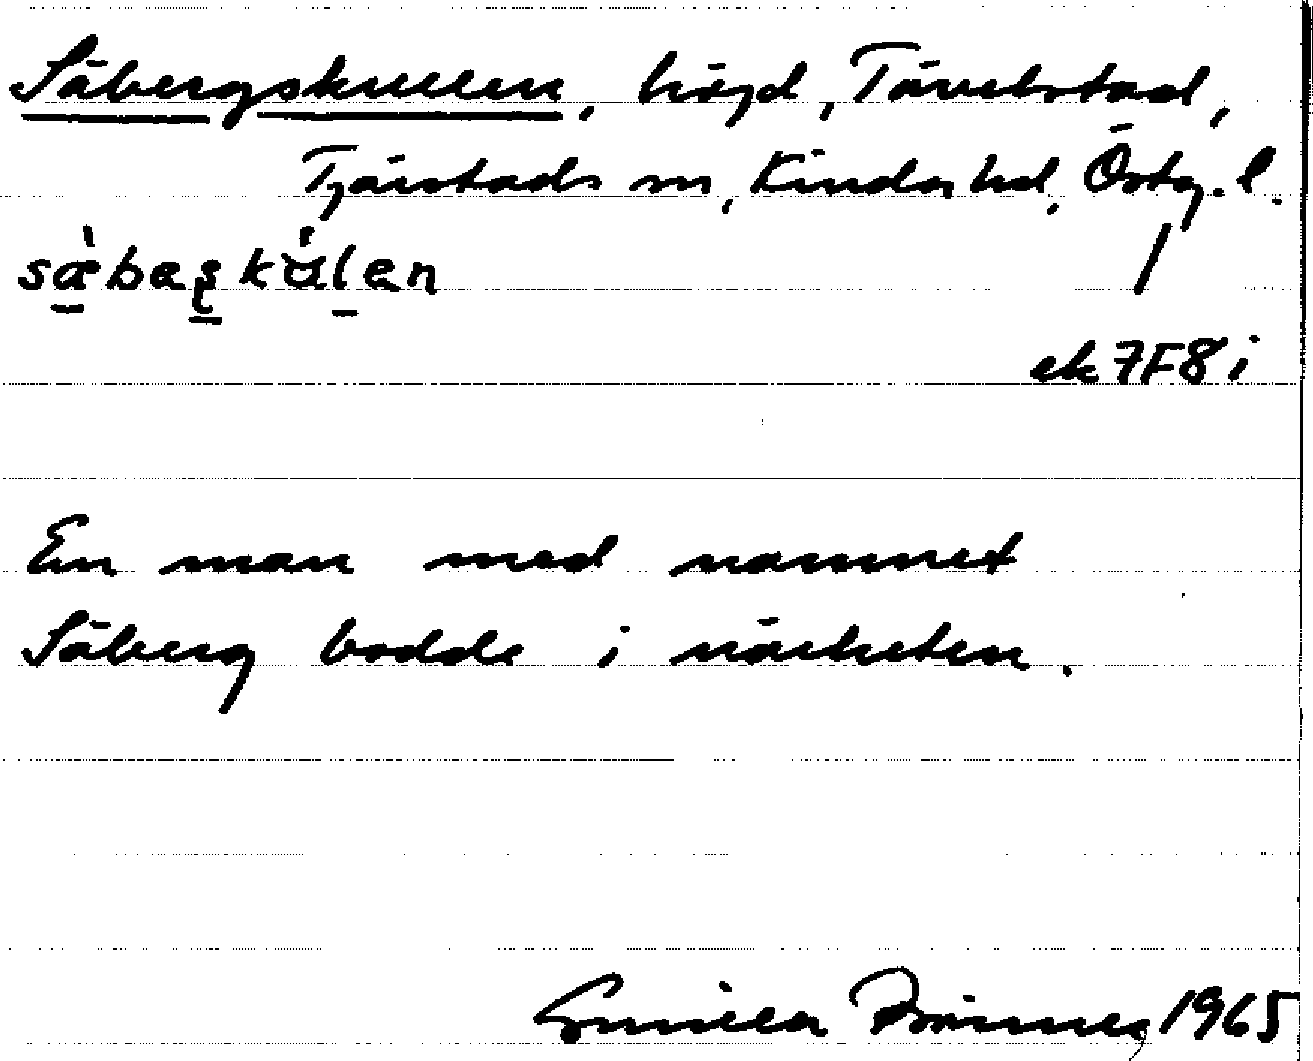 Säbergskullen, höjd, Tävelstad,
Tjärstads sn, Kinda hd, Östg. l.
sä̀baskúlan
ek 7F8i
En man med namnet
Säberg bodde i närheten.
Gunilla 1965